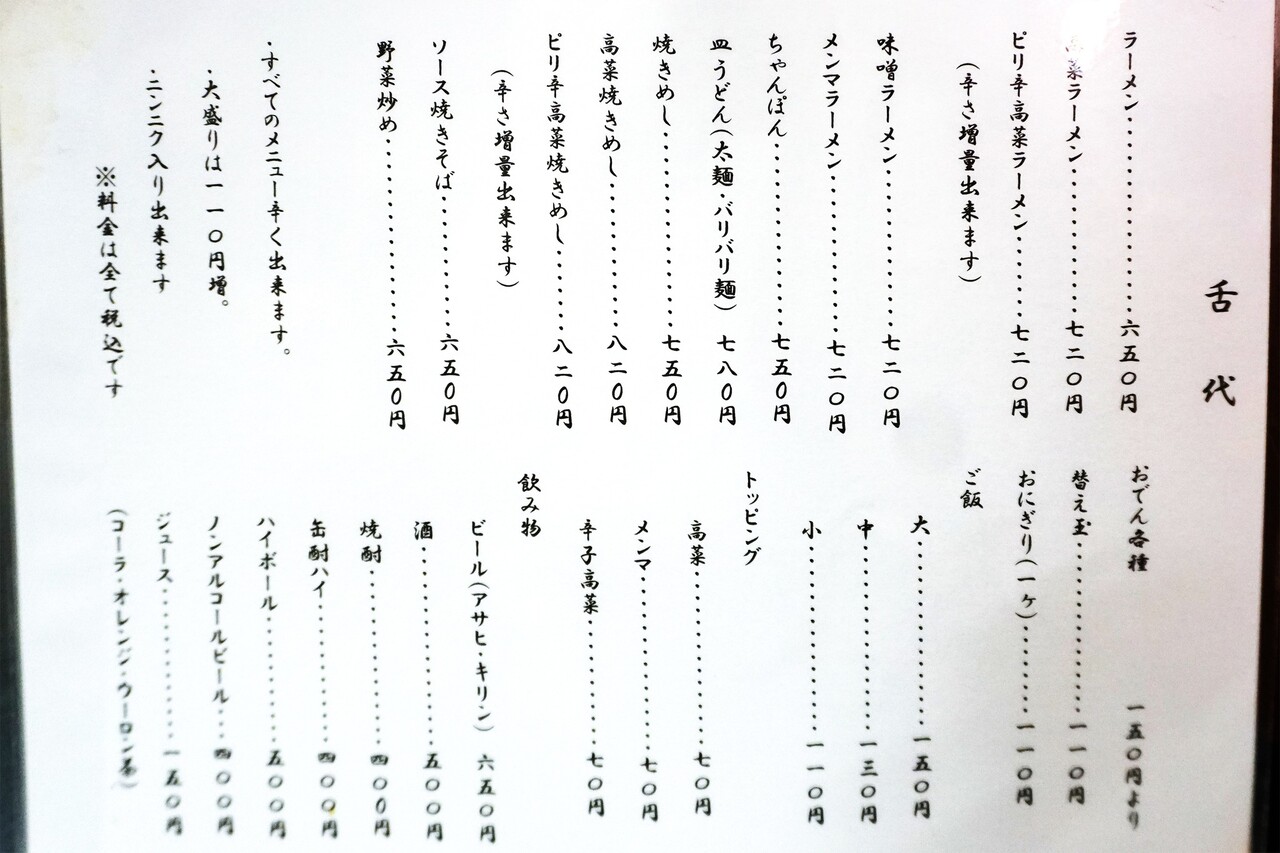 舌代
ラーメン‥‥‥‥‥‥‥‥六五〇円
高菜ラーメン‥‥‥‥‥‥七二〇円
ピリ辛高菜ラーメン‥‥‥七二〇円
(辛さ増量出来ます)
味噌ラーメン‥‥‥‥‥‥七二〇円
メンマラーメン‥‥‥‥‥七二〇円
ちゃんぽん‥‥‥‥‥‥‥七五〇円
皿うどん(太麺・バリバリ麺) 七八〇円
焼きめし‥‥‥‥‥‥‥‥七五〇円
高菜焼きめし‥‥‥‥‥‥八二〇円
ピリ辛高菜焼きめし‥‥‥八二〇円
(辛さ増量出来ます)
ソース焼きそば‥‥‥‥‥六五〇円
野菜炒め‥‥‥‥‥‥‥‥六五〇円
・すべてのメニュー辛く出来ます。
・大盛りは一一〇円増。
・ニンニク入り出来ます
※料金は全て税込です
おでん各種 一五〇円より
替え玉‥‥‥‥‥‥‥一一〇円
おにぎり(一ヶ)‥‥‥‥一一〇円
ご飯
大‥‥‥‥‥‥‥一五〇円
中‥‥‥‥‥‥‥一三〇円
小‥‥‥‥‥‥‥一一〇円
トッピング
高菜‥‥‥‥‥‥‥七〇円
メンマ‥‥‥‥‥‥七〇円
辛子高菜‥‥‥‥‥七〇円
飲み物
ビール(アサヒ・キリン) 六五〇円
酒‥‥‥‥‥‥‥‥五〇〇円
焼酎‥‥‥‥‥‥‥四〇〇円
缶酎ハイ‥‥‥‥‥四〇〇円
ハイボール‥‥‥‥五〇〇円
ノンアルコールビール‥四〇〇円
ジュース‥‥‥‥‥一五〇円
(コーラ・オレンジ・ウーロン茶)